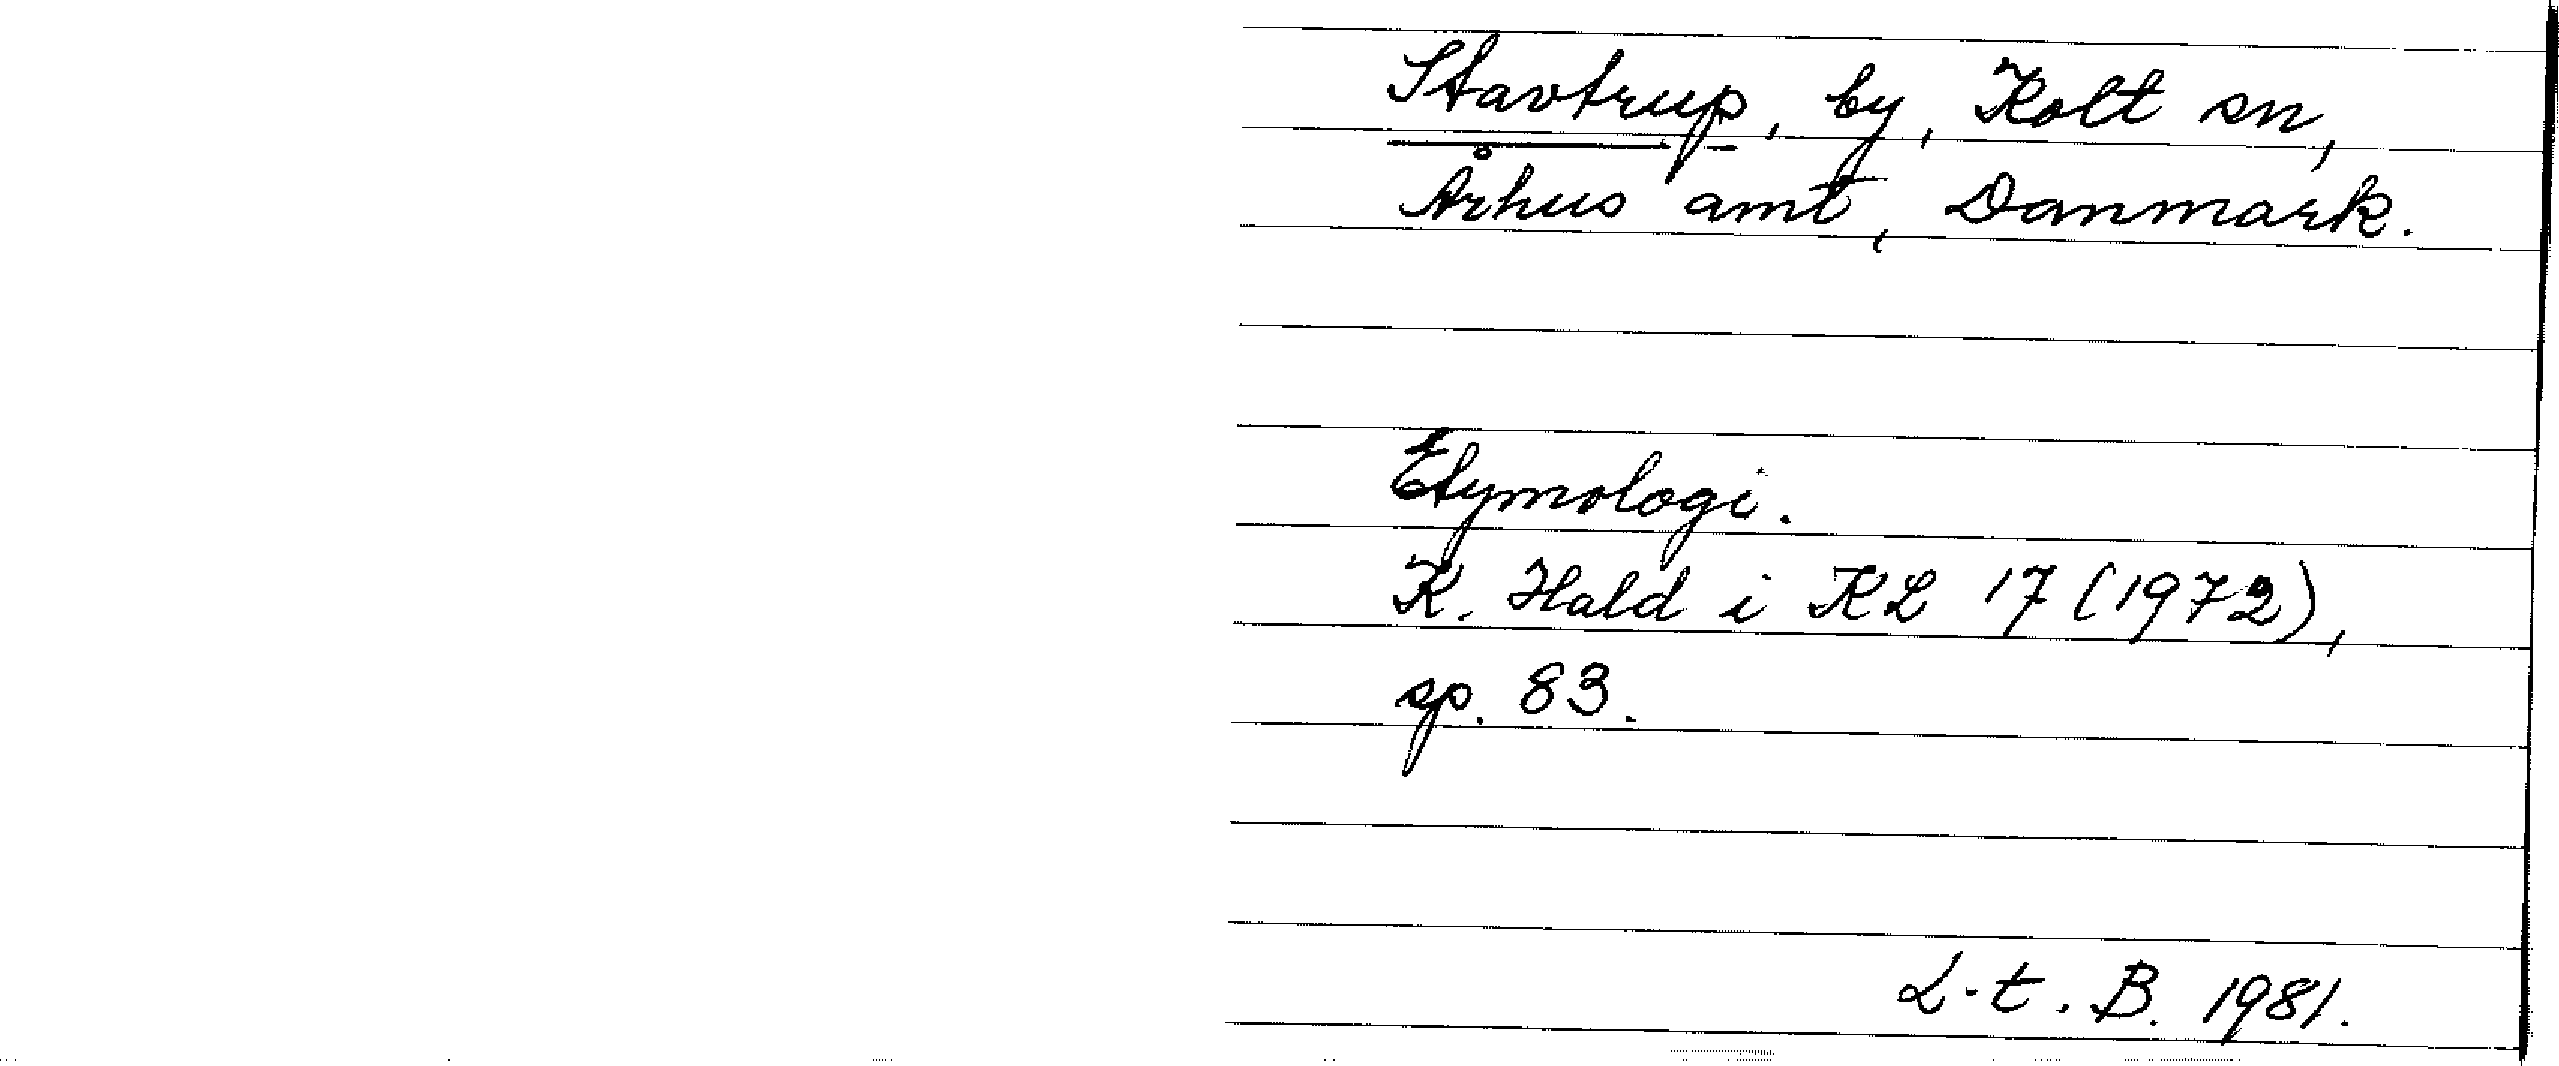 Stavtrup, by, Kolt sn,
Århus amt, Danmark.
Etymologi.
K. Hald i KL 17 (1972),
sp. 83.
L-t. B. 1981.